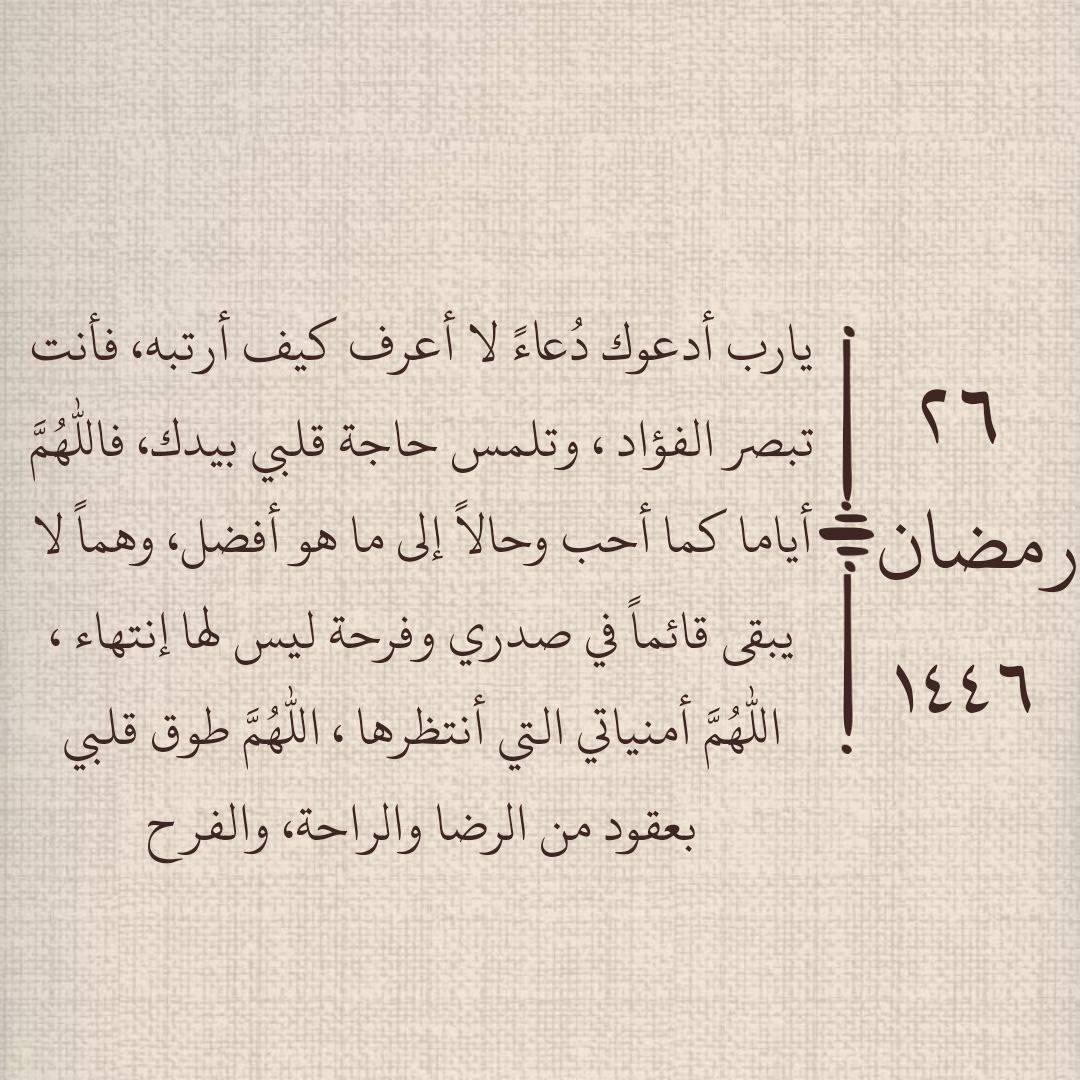 ٢٦
رمضان
١٤٤٦
يارب أدعوك دُعاءً لا أعرف كيف أرتبه، فأنت
تبصر الفؤاد ، وتلمس حاجة قلبي بيدك، فاللّٰهُمَّ
أياما كما أحب وحالاً إلى ما هو أفضل، وهماً لا
يبقى قائماً في صدري وفرحة ليس لها إنتهاء ،
اللّٰهُمَّ أمنياتي التي أنتظرها ، اللّٰهُمَّ طوق قلبي
بعقود من الرضا والراحة، والفرح